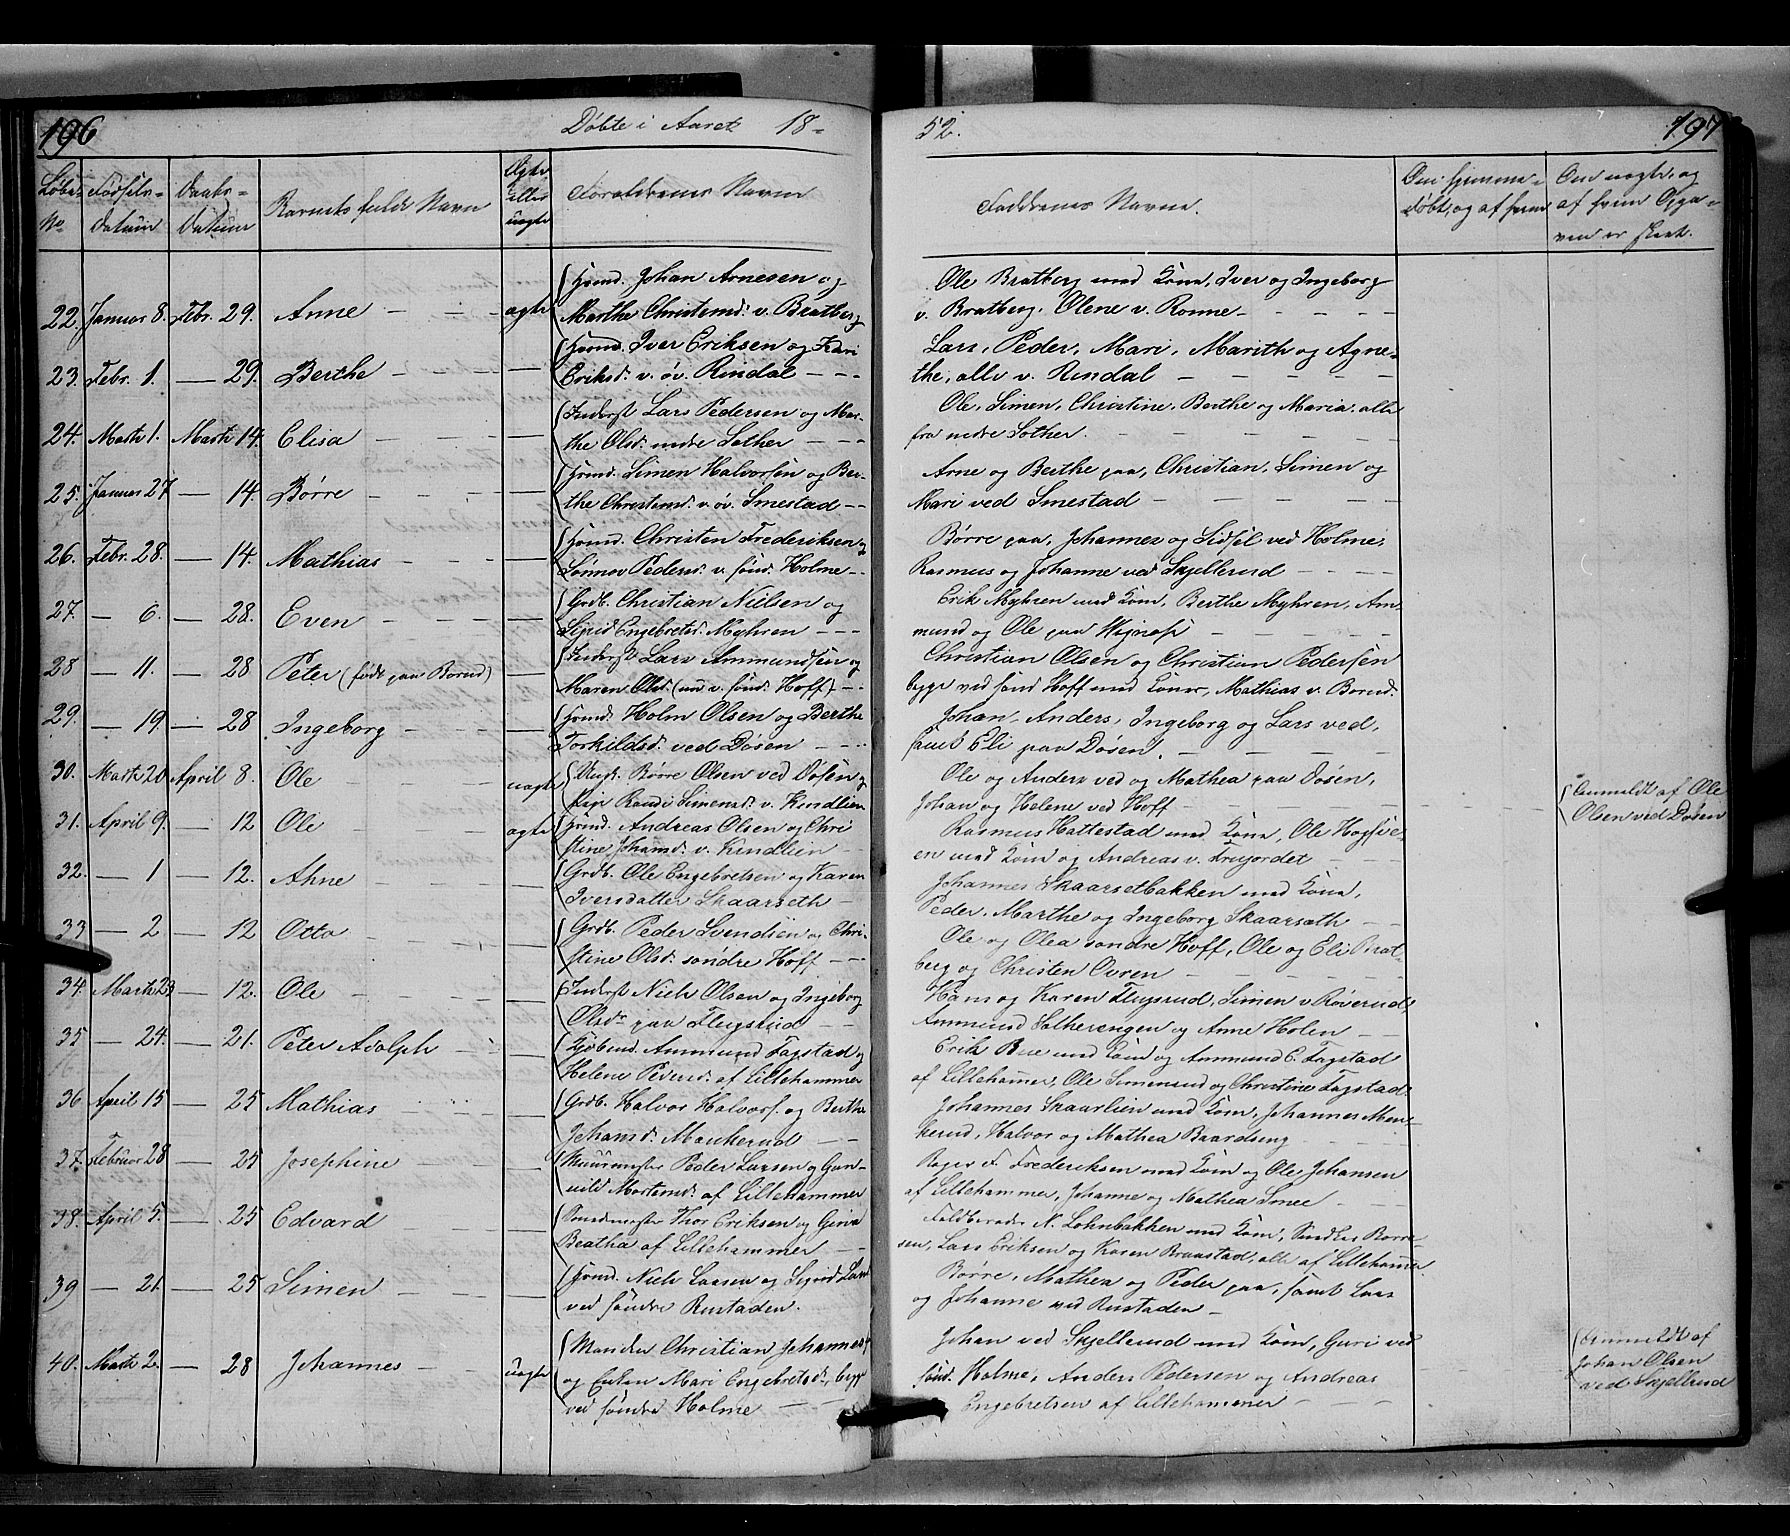 196
Døbte i Aaret 18-
Løbe- No.
Fødsels- Datum
Daabs- Datum
Barnets fulde Navn
Ægte eller uægte
Forældrenes Navne
22. Januar 8. Febr. 29. Anne - - - ægte
Huusmd. Johan Arnesen og
Marthe Christensd. v. Bratberg
23. Febr. 1. — 29. Berthe - - - —
Huusmd. Iver Eriksen og Kari
Eriksd. v. øv. Rindal - - -
24. Marts 1. Marts 14. Elisa - - - —
Inderst Lars Pedersen og Mar-
the Olsd. nedre Sother - - -
25. Januar 27 — 14. Børre - - - —
Huusmd. Simen Halvorsen og Ber-
the Christensd. v. øv. Smestad - -
26. Febr. 28. — 14. Mathias - - - —
Huusmd. Christen Frederiksen og
Lønnov Pedersd. v. sønd. Holme -
27. — 6. — 28. Even - - - —
Grdb. Christian Nielsen og
Sigrid Engebretsd. Myhren - - -
28 — 11. — 28 Peter (født paa Borud) —
Inderst Lars Ammundsen og
Maren Olsd. (nu v. sønd. Hoff) - -
29. — 19. — 28 Ingeborg - - —
Huusmd. Holm Olsen og Berthe
Torkildsd. ved Døsen - - -
30. Marts 20 April 8. Ole - - - uægte
Ungk. Børre Olsen ved Døsen og
Pige Randi Simensd. v. Kindlien
31. April 9. — 12 Ole - - - ægte
Huusmd. Andreas Olsen og Chri
stine Johansd. v. Kindlien -
32. — 1 — 12. Ahne - - - —
Grdb. Ole Engebretsen og Karen
Iversdatter Skaarseth -
33 — 2 — 12 Otto - - - —
Grdb. Peder Svendsen og Chri-
stine Olsd. søndre Hoff - - -
34. Marts 23 — 12. Ole - - - —
Inderst Niels Olsen og Ingeborg
Olsdr paa Flugstud - -
35 — 24. — 21. Peter Adolph - - —
Kjøbmd. Ammund Fagstad og
Helene Pedersd. af Lillehammer
36 April 15 — 25 Mathias - - - —
Grdb. Halvor Halvors. og Berthe
Johansd. Maukerud - -
37. Februar 28 — 25 Josephine - - —
Muurmester Peder Larsen og Gun-
nild Mortensd. af Lillehammer
38. April 5. — 25 Edvard - - —
Smedmester Thor Eriksen og
Beatha af Lillehammer - -
39 — 21. — 25 Simen - - —
Huusmd. Niels Larsen og Sigrid Larsd
ved søndre Rustaden.
40. Marts 2. — 28 Johannes - - uægte
Christian Johannes.
og Enken Mari Engebretsd., begge
ved søndre Holme - -
52.
197
Faddrenes Navne.
Om hjemme-
døbt, og af hvem
Om uægte, og
af hvem Opga-
ven er skeet.
Ole Bratberg med Kone, Iver og Ingeborg
v. Bratberg, Olene v. Ronne - - - - -
Lars, Peder, Mari, Marith og Agne-
the, alle v. Rindal - - - - -
Ole, Simen, Christine, Berthe og Maria, alle
fra nedre Sother. - - - - -
Arne og Berthe paa, Christian, Simen og
Mari ved Smestad - - - - -
Børre paa, Johannes og Sidsel ved Holme,
Rasmus og Johanne ved Skjellerud - - - -
Erik Myhren med Kone, Berthe Myhren, Am-
mund og Ole paa - - - -
Christian Olsen og Christian Pedersen
begge ved sønd Hoff med Koner, Mathias v. Borud.
Johan, Anders, Ingeborg og Lars ved,
samt Eli paa Døsen, - - - -
Ole og Anders ved og Mathea paa Døsen,
Johan og Helene ved Hoff - - - -
Anmeldt af Ole
Olsen ved Døsen
Rasmus Hattestad med Kone, Ole Hogsve-
en med Kone og Andreas v. Trujordet - - -
Johannes Skaarsetbakken med Kone,
Peder, Marthe og Ingeborg Skaarsæth - -
Ole og Olea søndre Hoff, Ole og Eli Brat-
berg og Christen Ovren - - - -
Hans og Karen Flugsrud, Simen v. Røverud,
Ammund Sotherengen og Anne Holen - -
Erik Bue med Kone og Ammund E. Fagstad
af Lillehamer, Ole Simensud og Christine Fagstad.
Johannes Skaarlien med Kone, Johannes Mau-
kerud, Halvor og Mathea Baardseng
F. Frederiksen med Kone og Ole Johansen
af Lillehammer, Johanne og Mathea Smee -
Feldbereder N. Lohnbakken med Kone, Børre-
sen, Lars Eriksen og Karen Braastad, alle af Lillehamer.
Børre, Mathea og Peder paa, samt Lars
og Johanne ved Rustaden -
Johan ved Skjellerud med Kone, Guri ved
sønd. Holme, Anders Pedersen og Andreas
Engebretsen af Lillehammer - - -
Anmeldt af
Johan Olsen
ved Skjellerud